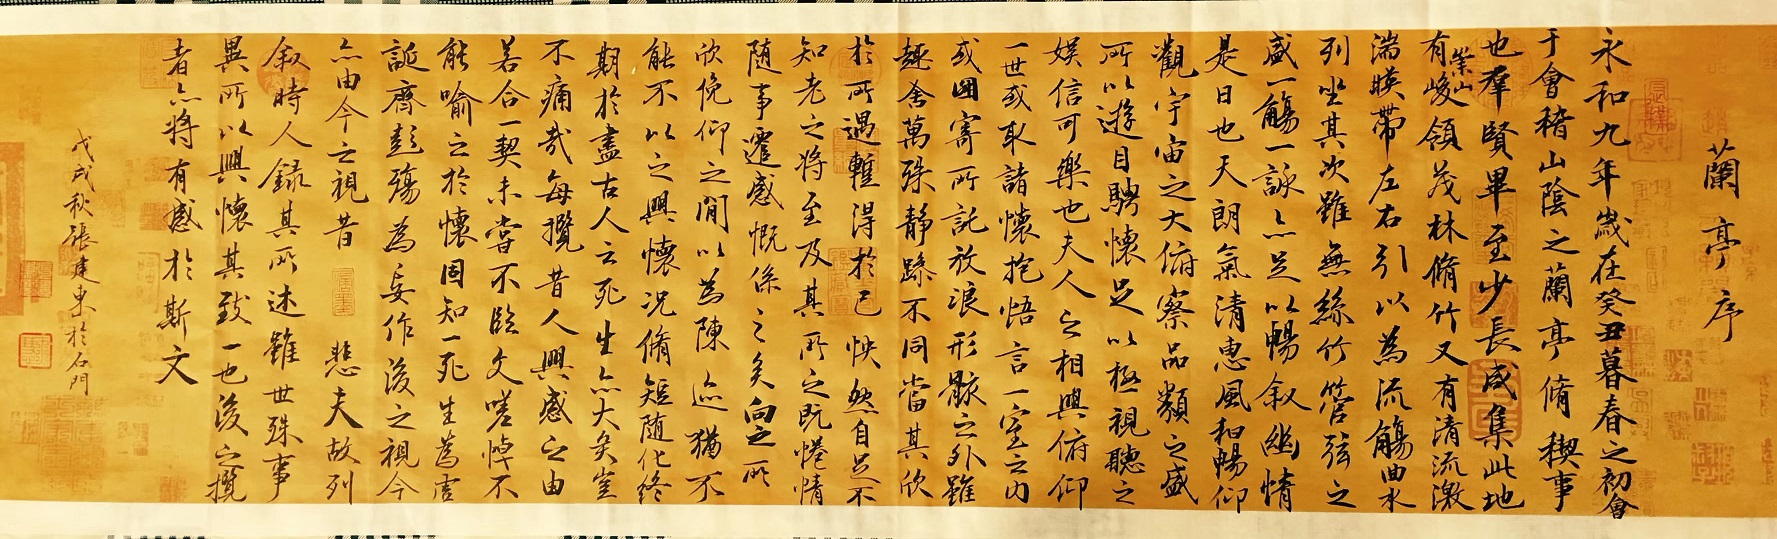 蘭亭序
永和九年歲在癸丑暮春之初會
于會稽山陰之蘭亭脩稧事
也羣賢畢至少長咸集此地
有崇山峻領茂林脩竹又有清流激
湍暎帶左右引以為流觴曲水
列坐其次雖無絲竹管弦之
盛一觴一詠亦足以暢叙幽情
是日也天朗氣清惠風和暢仰
觀宇宙之大俯察品類之盛
所以遊目騁懷足以極視聽之
娛信可樂也夫人之相與俯仰
一世或取諸懷抱悟言一室之內
或因寄所託放浪形骸之外雖
趣舍萬殊靜躁不同當其欣
於所遇暫得於己怏然自足不
知老之將至及其所之既惓情
隨事遷感慨係之矣向之所
欣俛仰之間以為陳迹猶不
能不以之興懷況脩短隨化終
期於盡古人云死生亦大矣豈
不痛哉每攬昔人興感之由
若合一契未嘗不臨文嗟悼不
能喻之於懷固知一死生為虛
誕齊彭殤為妄作後之視今
亦由今之視昔 悲夫故列
叙時人錄其所述雖世殊事
異所以興懷其致一也後之攬
者亦將有感於斯文
戊戌秋張建東於石門